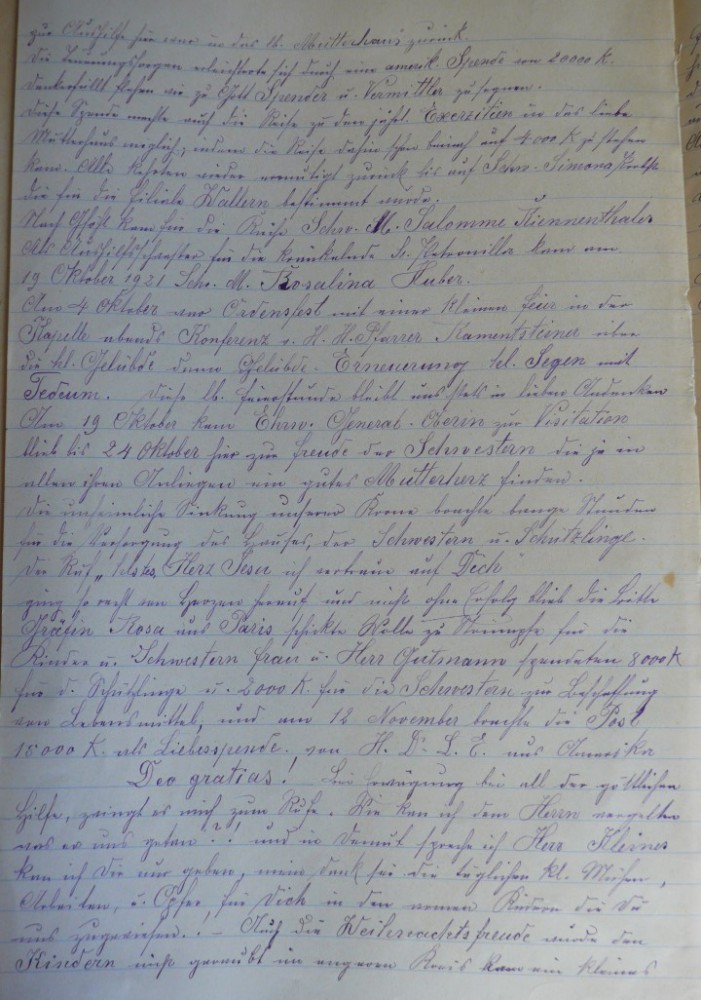 zur Aushilfe hier war in das lb. Mutterhaus zurück.
Die Teuerungssorgen erleichterte sich durch eine amerik. Spende von 20000 K.
Dankerfüllt flehen wir zu Gott Spender u. Vermittler zu segnen.
Diese Spende machte auch die Reise zu den jährl. Exerzitien in das liebe
Mutterhaus möglich, indem die Reise dahin schon beinah auf 4000 K zu stehen
kam. Alle kehrten wieder zurück bis auf Schw. Simona
die für die Filiale Wallern bestimmt wurde.
Nach kam für die Küche Schw. M. Salomme Kiennenthaler
Als Aushilfsschwester für die kränkelnde S. Petronilla kam am
19 Oktober 1921 Schw. M. Rosalina Huber.
Am 4 Oktober war Ordensfest mit einer kleinen Feier in der
Kapelle abends Konferenz v. H. H. Pfarrer Ramentsteiner über
die hl. Gelübde dann Gelübde-Erneuerung hl. Segen mit
Tedeum. Diese lb. Feierstunde bleibt uns stets in lieber Andenken
Am 19 Oktober kam Ehrw. General-Oberin zur Visitation
blieb bis 24 Oktober hier zur Freude der Schwestern die ja in
allen ihren Anliegen ein gutes Mutterherz finden.
Die unheimliche Sinkung unserer Krone brachte bange Stunden
für die Versorgung des Hauses, der Schwestern u. Schützlinge.
Der Ruf „hlstes Herz Jesu ich vertraue auf Dich"
ging so recht von Herzen herauf und nicht ohne Erfolg blieb die Bitte
Gräfin Rosa aus Paris schickte Wolle zu Strümpfe für die
Kinder u. Schwestern Frau u. Herr Gutmann spendeten 8000 K
für d. Schützlinge u. 2000 K. für die Schwestern zur Beschaffung
von Lebensmittel, und am 12 November brachte die Post
18000 K. als Liebesspende von H. Dr. L. E. aus Amerika
Deo gratias! Bei Erwägung bei all der göttlichen
Hilfe, zwingt es mich zum Rufe. Wie kan ich dem Herrn vergelten
was er uns getan?! und in Demut spreche ich Herr Kleines
kan ich Dir nur geben, mein Dank sei die täglichen kl. Mühen,
Arbeiten, u. Opfer für Dich in den armen Kindern die Du
uns zugewiesen.! – Auch die Weihnachtsfreude wurde den
Kindern nicht geraubt im engeren Kreis kam ein kleines